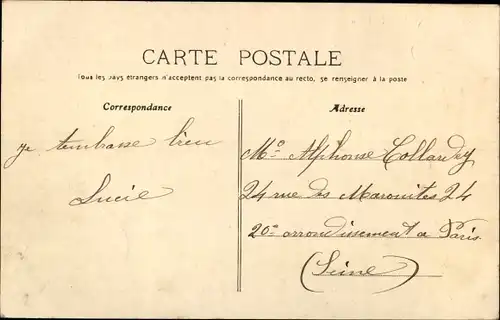 CARTE POSTALE
Tous les pays étrangers n'acceptent pas la correspondance au recto, se renseigner à la poste
Correspondance
Adresse
je tembrasse bien
Lucie
Mr Alphonse Collandey
24 rue des Maronites 24
20e arrondissement a Paris
(Seine)